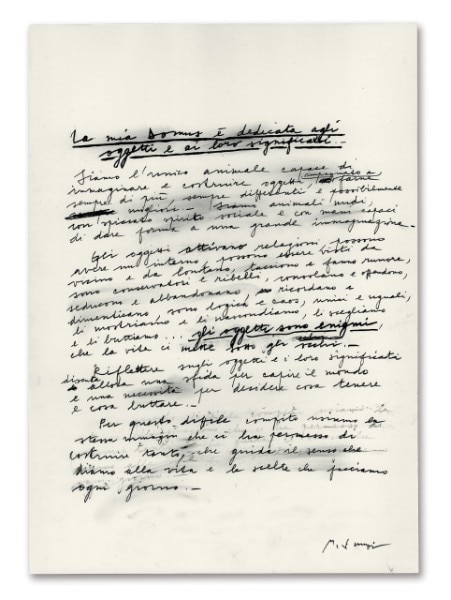 La mia Domus è dedicata agli
oggetti e ai loro significati.-
Siamo l'unico animale capace di
immaginare e costruire oggetti farne
sempre di più sempre differenti e possibilmente
migliori.- Siamo animali nudi,
con spiccato spirito sociale e con mani capaci
di dare forma a una grande immaginazione.-
Gli oggetti attivano relazioni, possono
avere un interno, possono essere visti da
vicino e da lontano, tacciono e fanno rumore,
sono conservatori e ribelli, consolano e offendono,
seducono e abbandonano, ricordano e
dimenticano, sono logica e caos, unici e uguali,
li mostriamo e li nascondiamo, li scegliamo
e li buttiamo... gli oggetti sono enigmi,
che la vita ci mette sotto gli occhi.-
Riflettere sugli oggetti e i loro significati
diventa allora una sfida per capire il mondo
e una necessità per decidere cosa tenere
e cosa buttare.-
Per questo dificile compito usiamo la
stessa immagin che ci ha permesso di
costruire tanto, che guida il senso che
diamo alla vita e le scelte che facciamo
ogni giorno.-